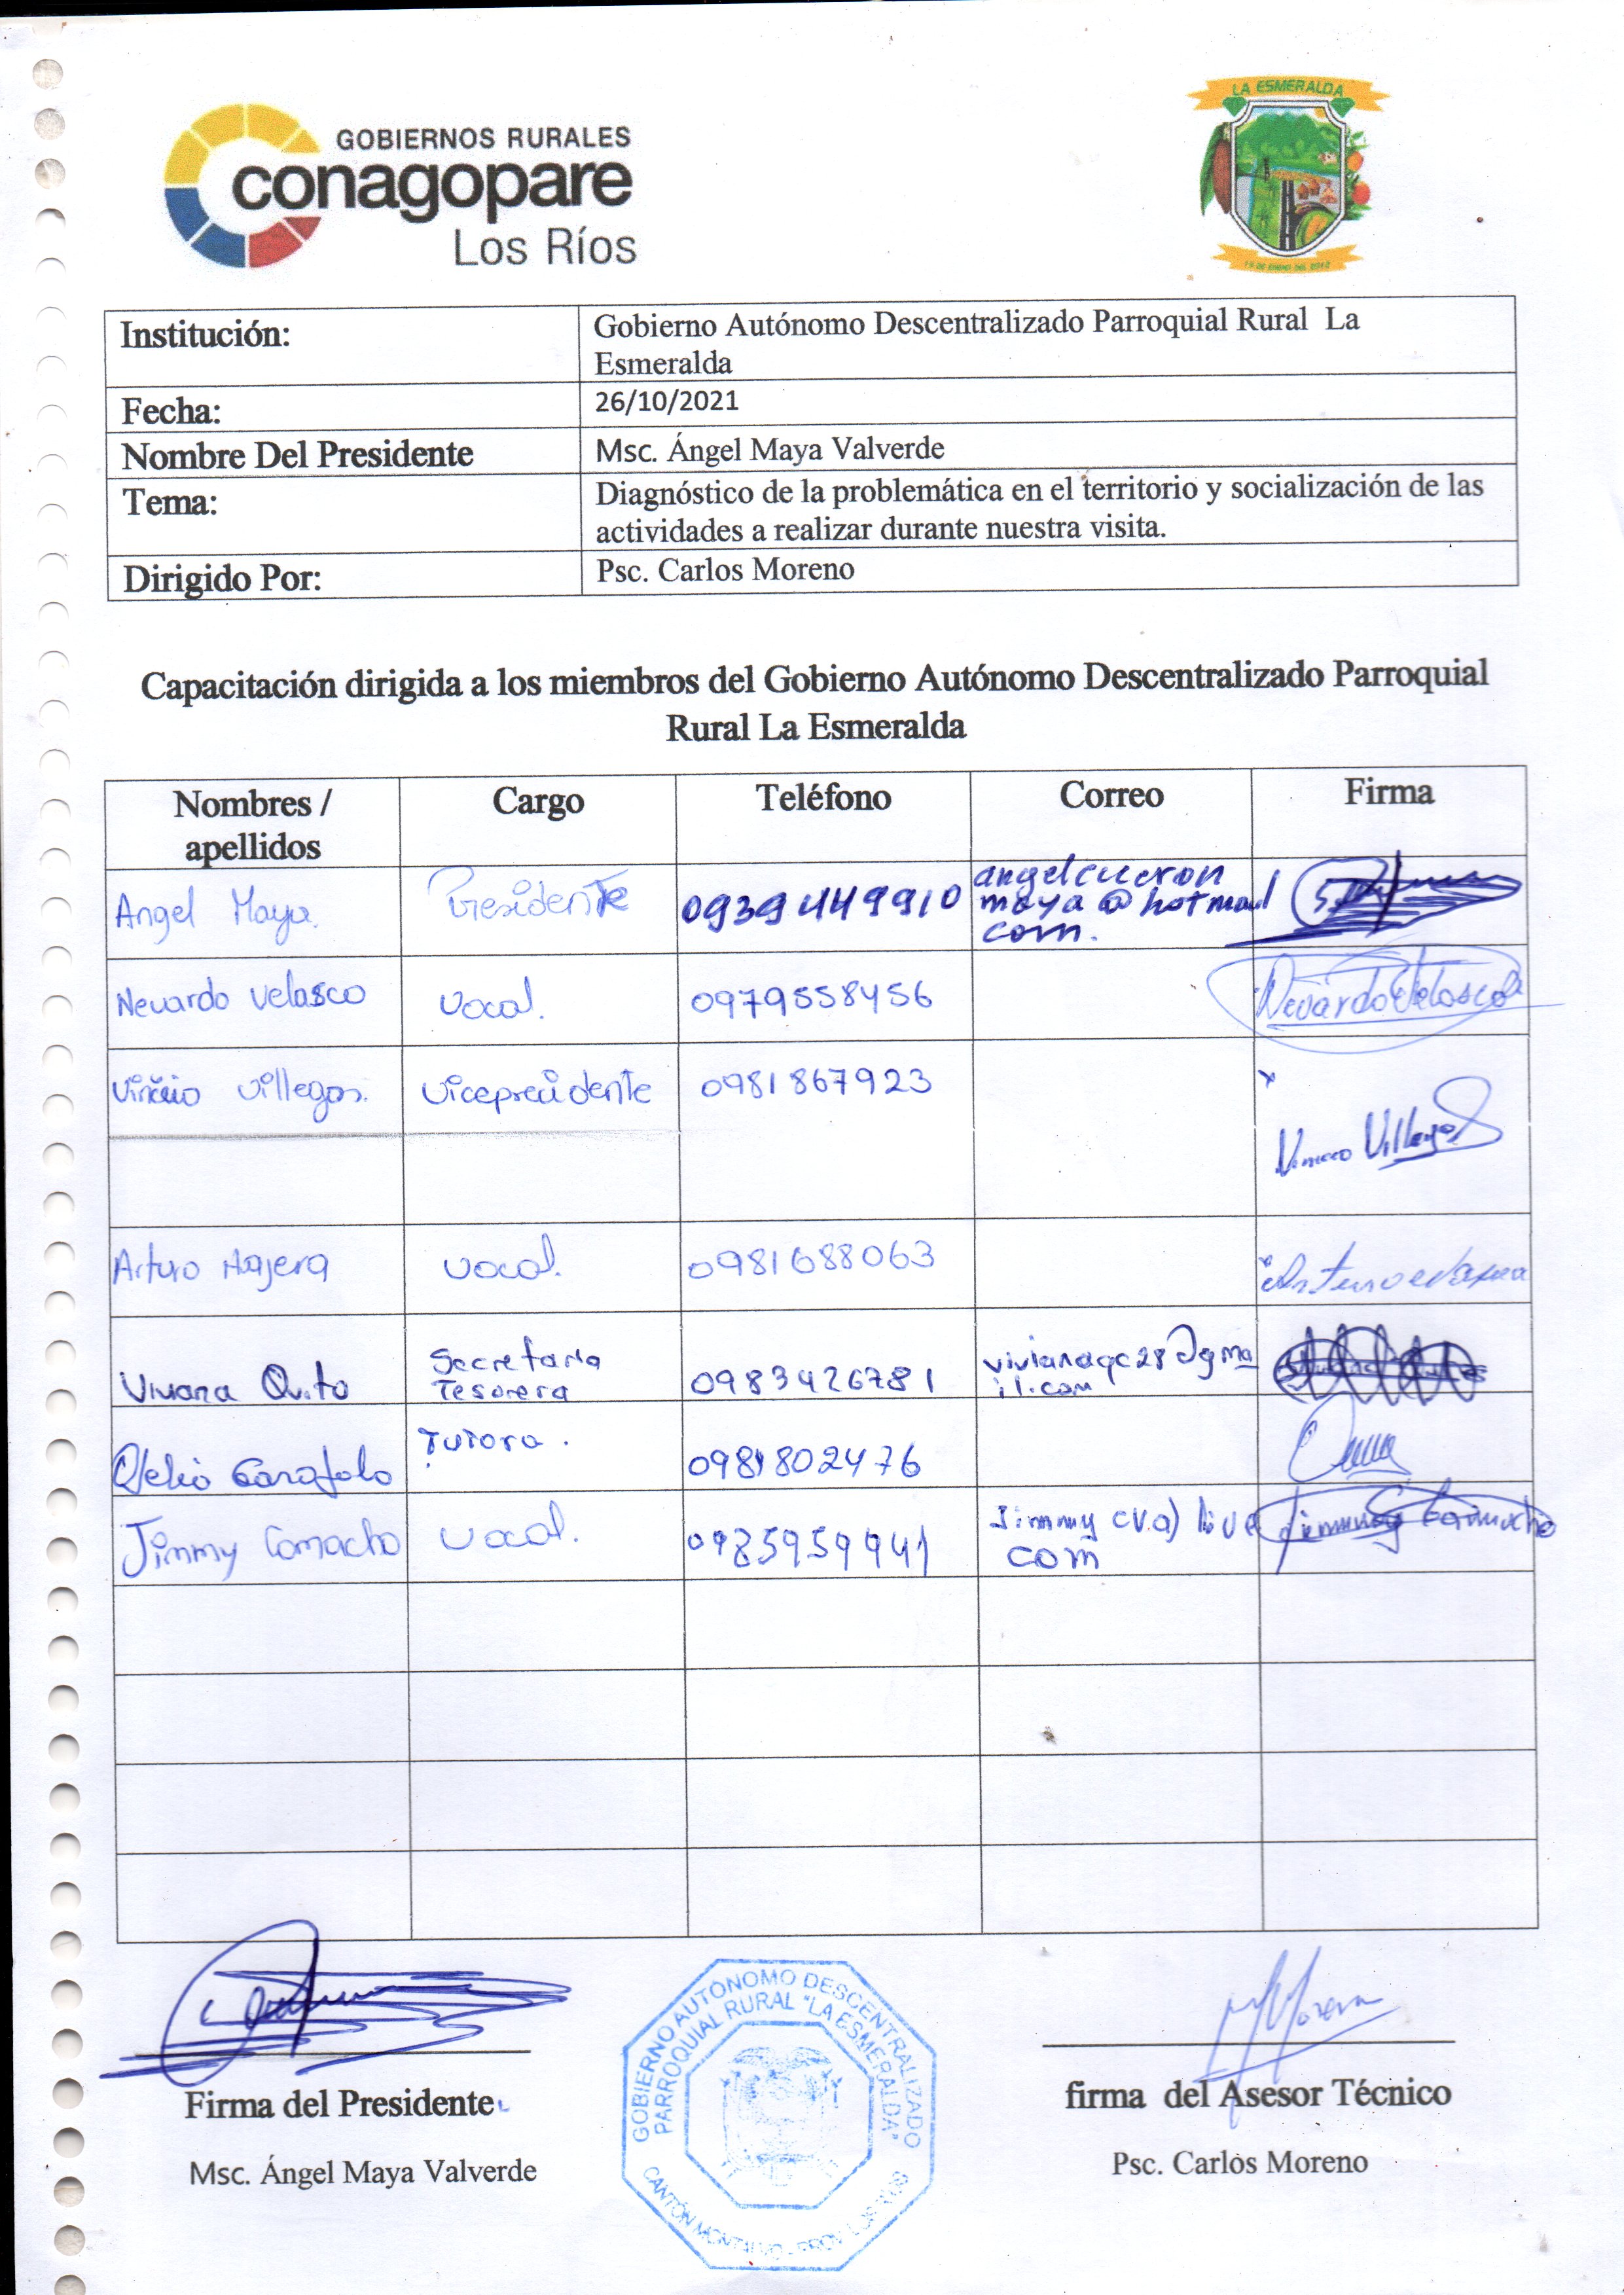 GOBIERNOS RURALES
conagopare
Los Ríos
LA ESMERALDA
Institución: Gobierno Autónomo Descentralizado Parroquial Rural La
Esmeralda
Fecha: 26/10/2021
Nombre Del Presidente Msc. Ángel Maya Valverde
Tema: Diagnóstico de la problemática en el territorio y socialización de las
actividades a realizar durante nuestra visita.
Dirigido Por: Psc. Carlos Moreno
Capacitación dirigida a los miembros del Gobierno Autónomo Descentralizado Parroquial
Rural La Esmeralda
Nombres / Cargo Teléfono Correo Firma
apellidos
Angel Maya. Presidente 0939449910
maya@hotmail
com.
Nevardo Velasco Vocal. 0979558456 Nevardo Velasco
Villegas. Vicepresidente 0981867923
Villegas
Arturo Najera Vocal. 0981688063 Arturo
Viviana Quito Secretaria 0983426781 vivianaqc28@gma
Tesorera il.com
Garofalo Tutora. 0981802476
Jimmy Camacho Vocal. 0985959941 Jimmy Jimmy Camacho
com
Firma del Presidente firma del Asesor Técnico
Msc. Ángel Maya Valverde Psc. Carlos Moreno
GOBIERNO AUTÓNOMO DESCENTRALIZADO
PARROQUIAL RURAL "LA ESMERALDA"
CANTÓN MONTALVO - PROV. LOS RIOS